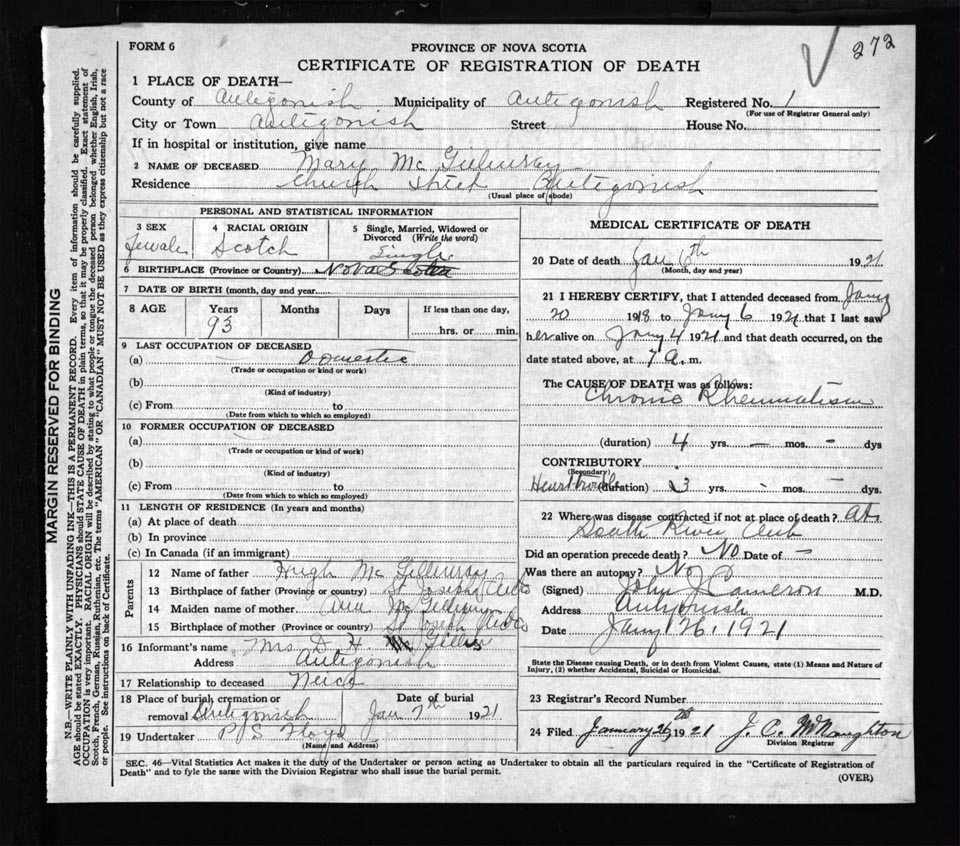 272
FORM 6
PROVINCE OF NOVA SCOTIA
CERTIFICATE OF REGISTRATION OF DEATH
1 PLACE OF DEATH—
County of Antigonish Municipality of Antigonish Registered No. 1
(For use of Registrar General only)
City or Town Antigonish Street House No.
If in hospital or institution, give name
2 NAME OF DECEASED Mary McGillivray
Residence Church Street Antigonish
(Usual place of abode)
PERSONAL AND STATISTICAL INFORMATION
3 SEX 4 RACIAL ORIGIN 5 Single, Married, Widowed or Divorced (Write the word)
Female Scotch Single
6 BIRTHPLACE (Province or Country) Nova Scotia
7 DATE OF BIRTH (month, day and year
8 AGE Years Months Days If less than one day,
93 hrs. or min.
9 LAST OCCUPATION OF DECEASED
(a) Domestic
(Trade or occupation or kind or work)
(b)
(Kind of industry)
(c) From to
(Date from which to which so employed)
10 FORMER OCCUPATION OF DECEASED
(a)
(Trade or occupation or kind of work)
(b)
(Kind of industry)
(c) From to
(Date from which to which so employed)
11 LENGTH OF RESIDENCE (In years and months)
(a) At place of death
(b) In province
(c) In Canada (if an immigrant)
Parents
12 Name of father Hugh McGillivray
13 Birthplace of father (Province or country) St Joseph
14 Maiden name of mother Ann McGillivray
15 Birthplace of mother (Province or country) St Joseph
16 Informant's name Mrs D. H. Gillis
Address Antigonish
17 Relationship to deceased Neice
18 Place of burial, cremation or removal Antigonish
Date of burial
Jan 7th 1921
19 Undertaker P S Floyd
(Name and Address)
MEDICAL CERTIFICATE OF DEATH
20 Date of death Jan 6th 1921
(Month, day and year)
21 I HEREBY CERTIFY, that I attended deceased from Jany
20 1918 to Jany 6 1921 that I last saw
her alive on Jany 4 1921 and that death occurred, on the
date stated above, at 7 a. m.
The CAUSE OF DEATH was as follows:
Chronic Rheumatism
(duration) 4 yrs. – mos. – dys
CONTRIBUTORY
(Secondary)
Heart trouble (duration) 3 yrs. – mos. – dys.
22 Where was disease contracted if not at place of death? At
South River
Did an operation precede death? No Date of –
Was there an autopsy? No
(Signed) John J Cameron M.D.
Address Antigonish
Date Jany 26, 1921
State the Disease causing Death, or in death from Violent Causes, state (1) Means and Nature of
Injury, (2) whether Accidental, Suicidal or Homicidal.
23 Registrar's Record Number
24 Filed January 26, 1921 J. C. McNaughton
Division Registrar
SEC. 46—Vital Statistics Act makes it the duty of the Undertaker or person acting as Undertaker to obtain all the particulars required in the "Certificate of Registration of
Death" and to fyle the same with the Division Registrar who shall issue the burial permit.
(OVER)
MARGIN RESERVED FOR BINDING
N.B.—WRITE PLAINLY WITH UNFADING INK—THIS IS A PERMANENT RECORD. Every item of information should be carefully supplied.
AGE should be stated EXACTLY. PHYSICIANS should STATE CAUSE OF DEATH in plain terms, so that it may be properly classified. Exact statement of
OCCUPATION is very important. RACIAL ORIGIN will be described by stating to what people or tongue the deceased person belonged whether English, Irish,
Scotch, French, German, Russian, Ruthenian, etc. The terms "AMERICAN" OR "CANADIAN" MUST NOT BE USED as they express citizenship but not a race
or people. See instructions on back of Certificate.